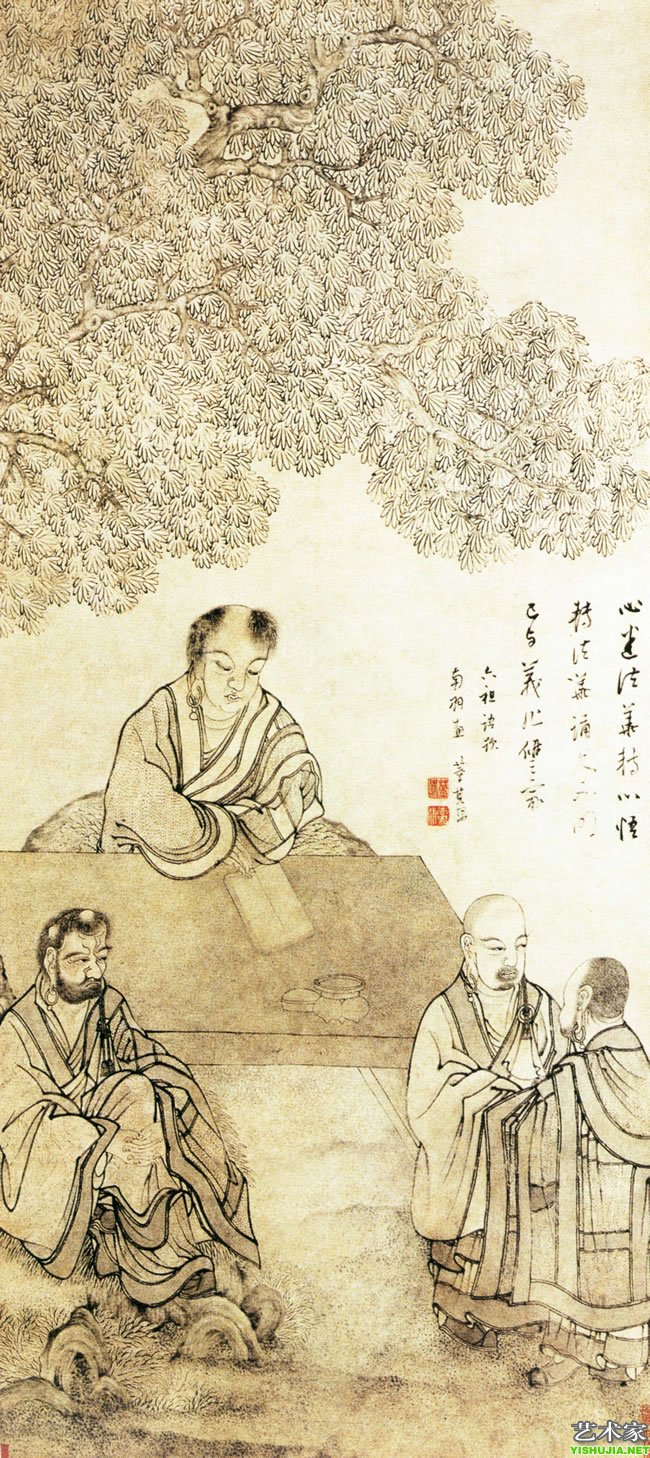 心迷法華轉心悟
轉法華誦久不明
己与義作讎家
六祖語
南羽畫 董其昌
艺术家
YISHUJIA.NET